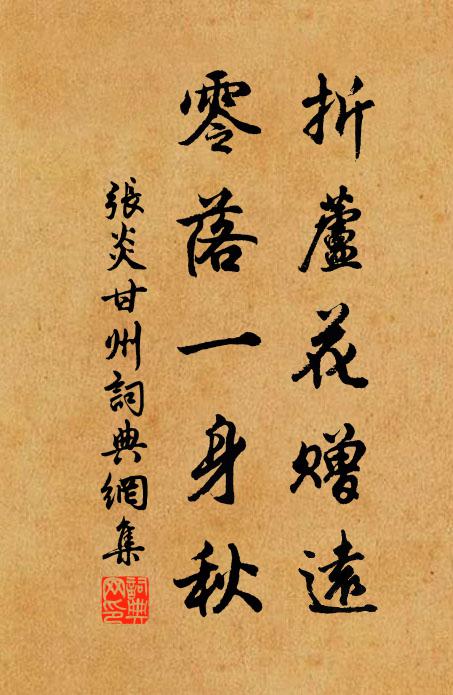 折蘆花贈遠
零落一身秋
張炎甘州詞典網集
詞典網印